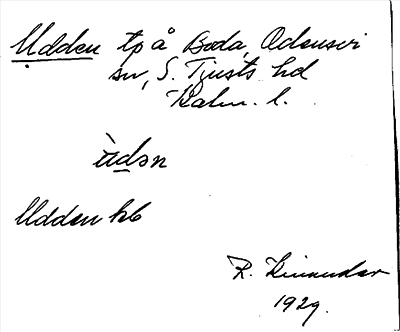 Udden tp å Boda, Odensvi
sn, S. Tjusts hd
Kalm. l.
ùdən
Udden hb
R. Linander
1929.